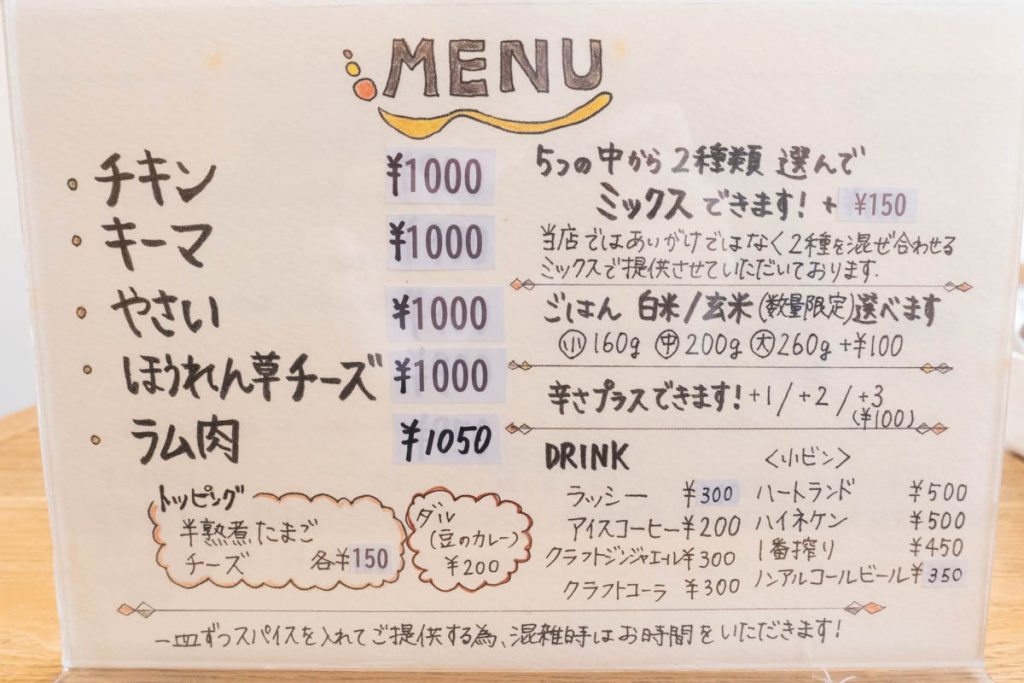 MENU
チキン ¥1000
キーマ ¥1000
やさい ¥1000
ほうれん草チーズ ¥1000
ラム肉 ¥1050
トッピング
半熟煮たまご
チーズ 各¥150
ダル
(豆のカレー)
¥200
5つの中から2種類 選んで
ミックスできます! + ¥150
当店ではあいがけではなく2種を混ぜ合わせる
ミックスで提供させていただいております.
ごはん 白米/玄米(数量限定)選べます
小160g 中200g 大260g +¥100
辛さプラスできます! +1/+2/+3
(¥100)
DRINK
ラッシー ¥300
アイスコーヒー ¥200
クラフトジンジャエール ¥300
クラフトコーラ ¥300
〈小ビン〉
ハートランド ¥500
ハイネケン ¥500
1番搾り ¥450
ノンアルコールビール ¥350
一皿ずつスパイスを入れてご提供する為、混雑時はお時間をいただきます!